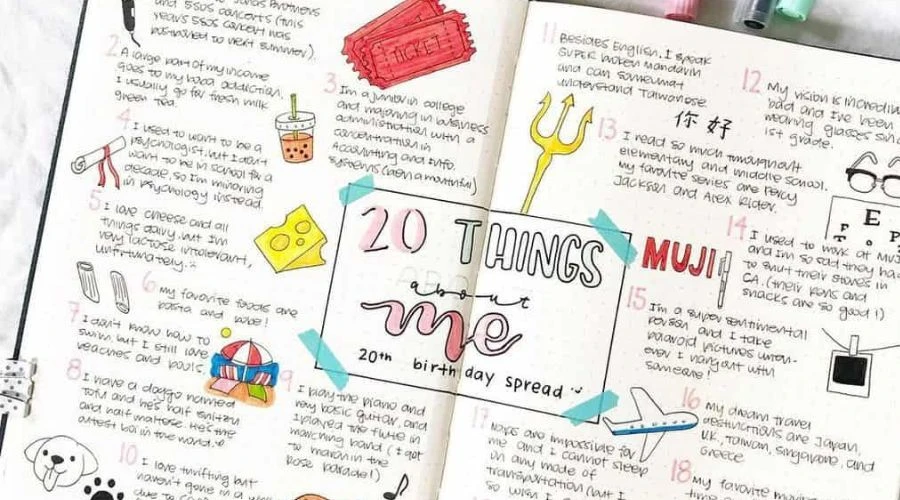 Jonas Brothers
and 5SOS concerts (this
years 5SOS concert was
postponed to next summer).
2
A large part of my income
goes to my boba addiction.
I usually go for fresh milk
green tea.
TICKET
3
I'm a junior in college
and majoring in business
administration with a
concentration in
Accounting and Info.
Systems (damn a mouthful)
4
I used to want to be a
psychologist, but I don't
want to be in school for a
decade, so I'm minoring
in psychology instead.
5
I love cheese and all
things dairy, but I'm
very lactose intolerant,
unfortunately.
6
My favorite foods are
pasta and
7
I don't know how to
swim, but I still love
beaches and pools
8
I have a doggo named
Tofu and he's half shitzu
and half maltese. He's the
cutest boi in the world.
9
I play the piano and
very basic guitar, and
I played the flute in
marching band (I got
to march in the
Rose parade!)
10
I love thrifting but
haven't gone in a
due to
20 THINGS
about
me
20th birthday spread
11
Besides English, I speak
SUPER broken Mandarin
and can somewhat
understand Taiwanese
你 好
12
My vision is
bad and I've been
wearing glasses
1st grade.
E
F
P
13
I read so much throughout
elementary and middle school.
My favorite series are Percy
Jackson and Alex Rider.
14
I used to work at
and I'm so sad they
to shut their stores in
CA. (their pens and
snacks are so good!)
MUJI
15
I'm a super sentimental
person and I take
polaroid pictures
ever I hangout with
someone!
16
My dream travel
destinations are Japan,
UK, Taiwan, Singapore, and
Greece
17
Naps are impossible for
me and I cannot sleep
in any mode of
transportation (but I
so wish I
18
My favorite